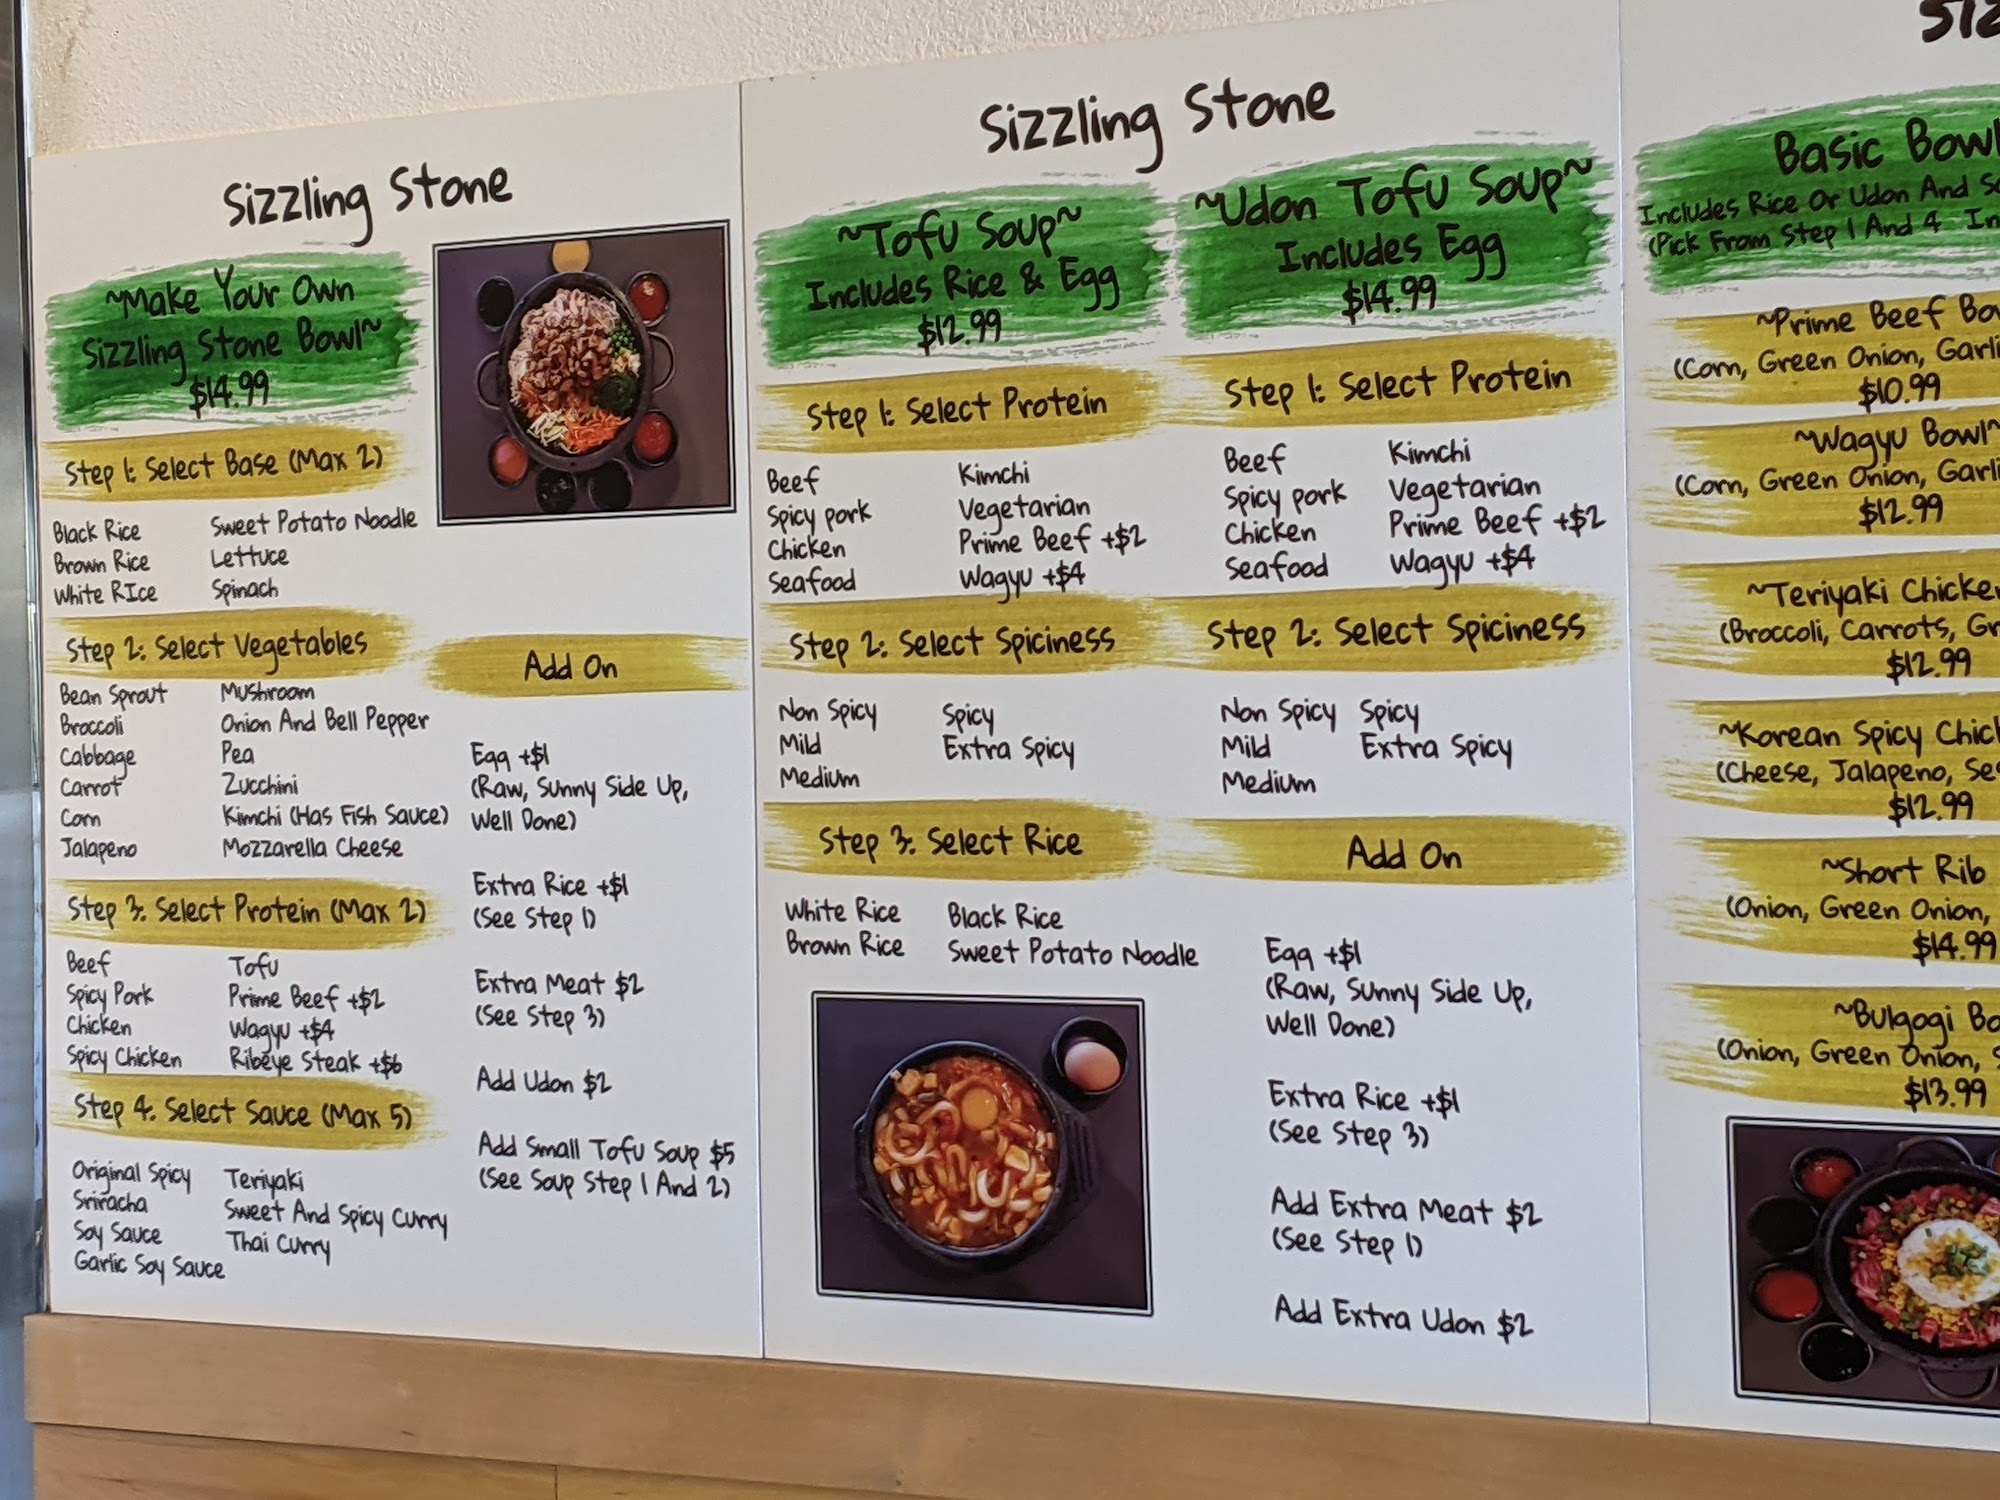 Sizzling Stone
~Make Your Own
Sizzling Stone Bowl~
$14.99
Step 1: Select Base (Max 2)
Black Rice
Brown Rice
White RIce
Sweet Potato Noodle
Lettuce
Spinach
Step 2: Select Vegetables
Bean Sprout
Broccoli
Cabbage
Carrot
Corn
Jalapeno
Mushroom
Onion And Bell Pepper
Pea
Zucchini
Kimchi (Has Fish Sauce)
Mozzarella Cheese
Step 3: Select Protein (Max 2)
Beef
Spicy Pork
Chicken
Spicy Chicken
Tofu
Prime Beef +$2
Wagyu +$4
Ribeye Steak +$6
Step 4: Select Sauce (Max 5)
Original Spicy
Sriracha
Soy Sauce
Garlic Soy Sauce
Teriyaki
Sweet And Spicy Curry
Thai Curry
Add On
Egg +$1
(Raw, Sunny Side Up,
Well Done)
Extra Rice +$1
(See Step 1)
Extra Meat $2
(See Step 3)
Add Udon $2
Add Small Tofu Soup $5
(See Soup Step 1 And 2)
Sizzling Stone
~Tofu Soup~
Includes Rice & Egg
$12.99
Step 1: Select Protein
Beef
Spicy pork
Chicken
Seafood
Kimchi
Vegetarian
Prime Beef +$2
Wagyu +$4
Step 2: Select Spiciness
Non Spicy
Mild
Medium
Spicy
Extra Spicy
Step 3: Select Rice
White Rice
Brown Rice
Black Rice
Sweet Potato Noodle
~Udon Tofu Soup~
Includes Egg
$14.99
Step 1: Select Protein
Beef
Spicy pork
Chicken
Seafood
Kimchi
Vegetarian
Prime Beef +$2
Wagyu +$4
Step 2: Select Spiciness
Non Spicy
Mild
Medium
Spicy
Extra Spicy
Add On
Egg +$1
(Raw, Sunny Side Up,
Well Done)
Extra Rice +$1
(See Step 3)
Add Extra Meat $2
(See Step 1)
Add Extra Udon $2
Basic
Includes Rice Or Udon And
(Pick From Step 1 And 4
~Prime Beef
(Corn, Green Onion,
$10.99
~Wagyu Bowl~
(Corn, Green Onion,
$12.99
~Teriyaki
(Broccoli, Carrots,
$12.99
~Korean Spicy
(Cheese, Jalapeno,
$12.99
~Short Rib
(Onion, Green Onion,
$14.99
~Bulgogi
(Onion, Green Onion,
$13.99